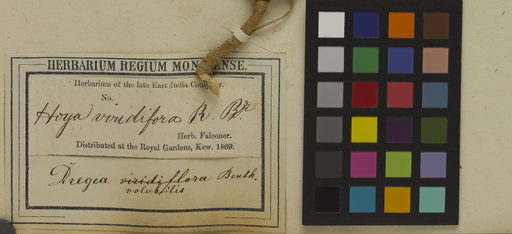 HERBARIUM REGIUM MONACENSE.
Herbarium of the late East India Company.
No.
Hoya viridifora R. Br.
Herb. Falconer.
Distributed at the Royal Gardens, Kew. 1869.
Dregea viridiflora Benth.
volubilis